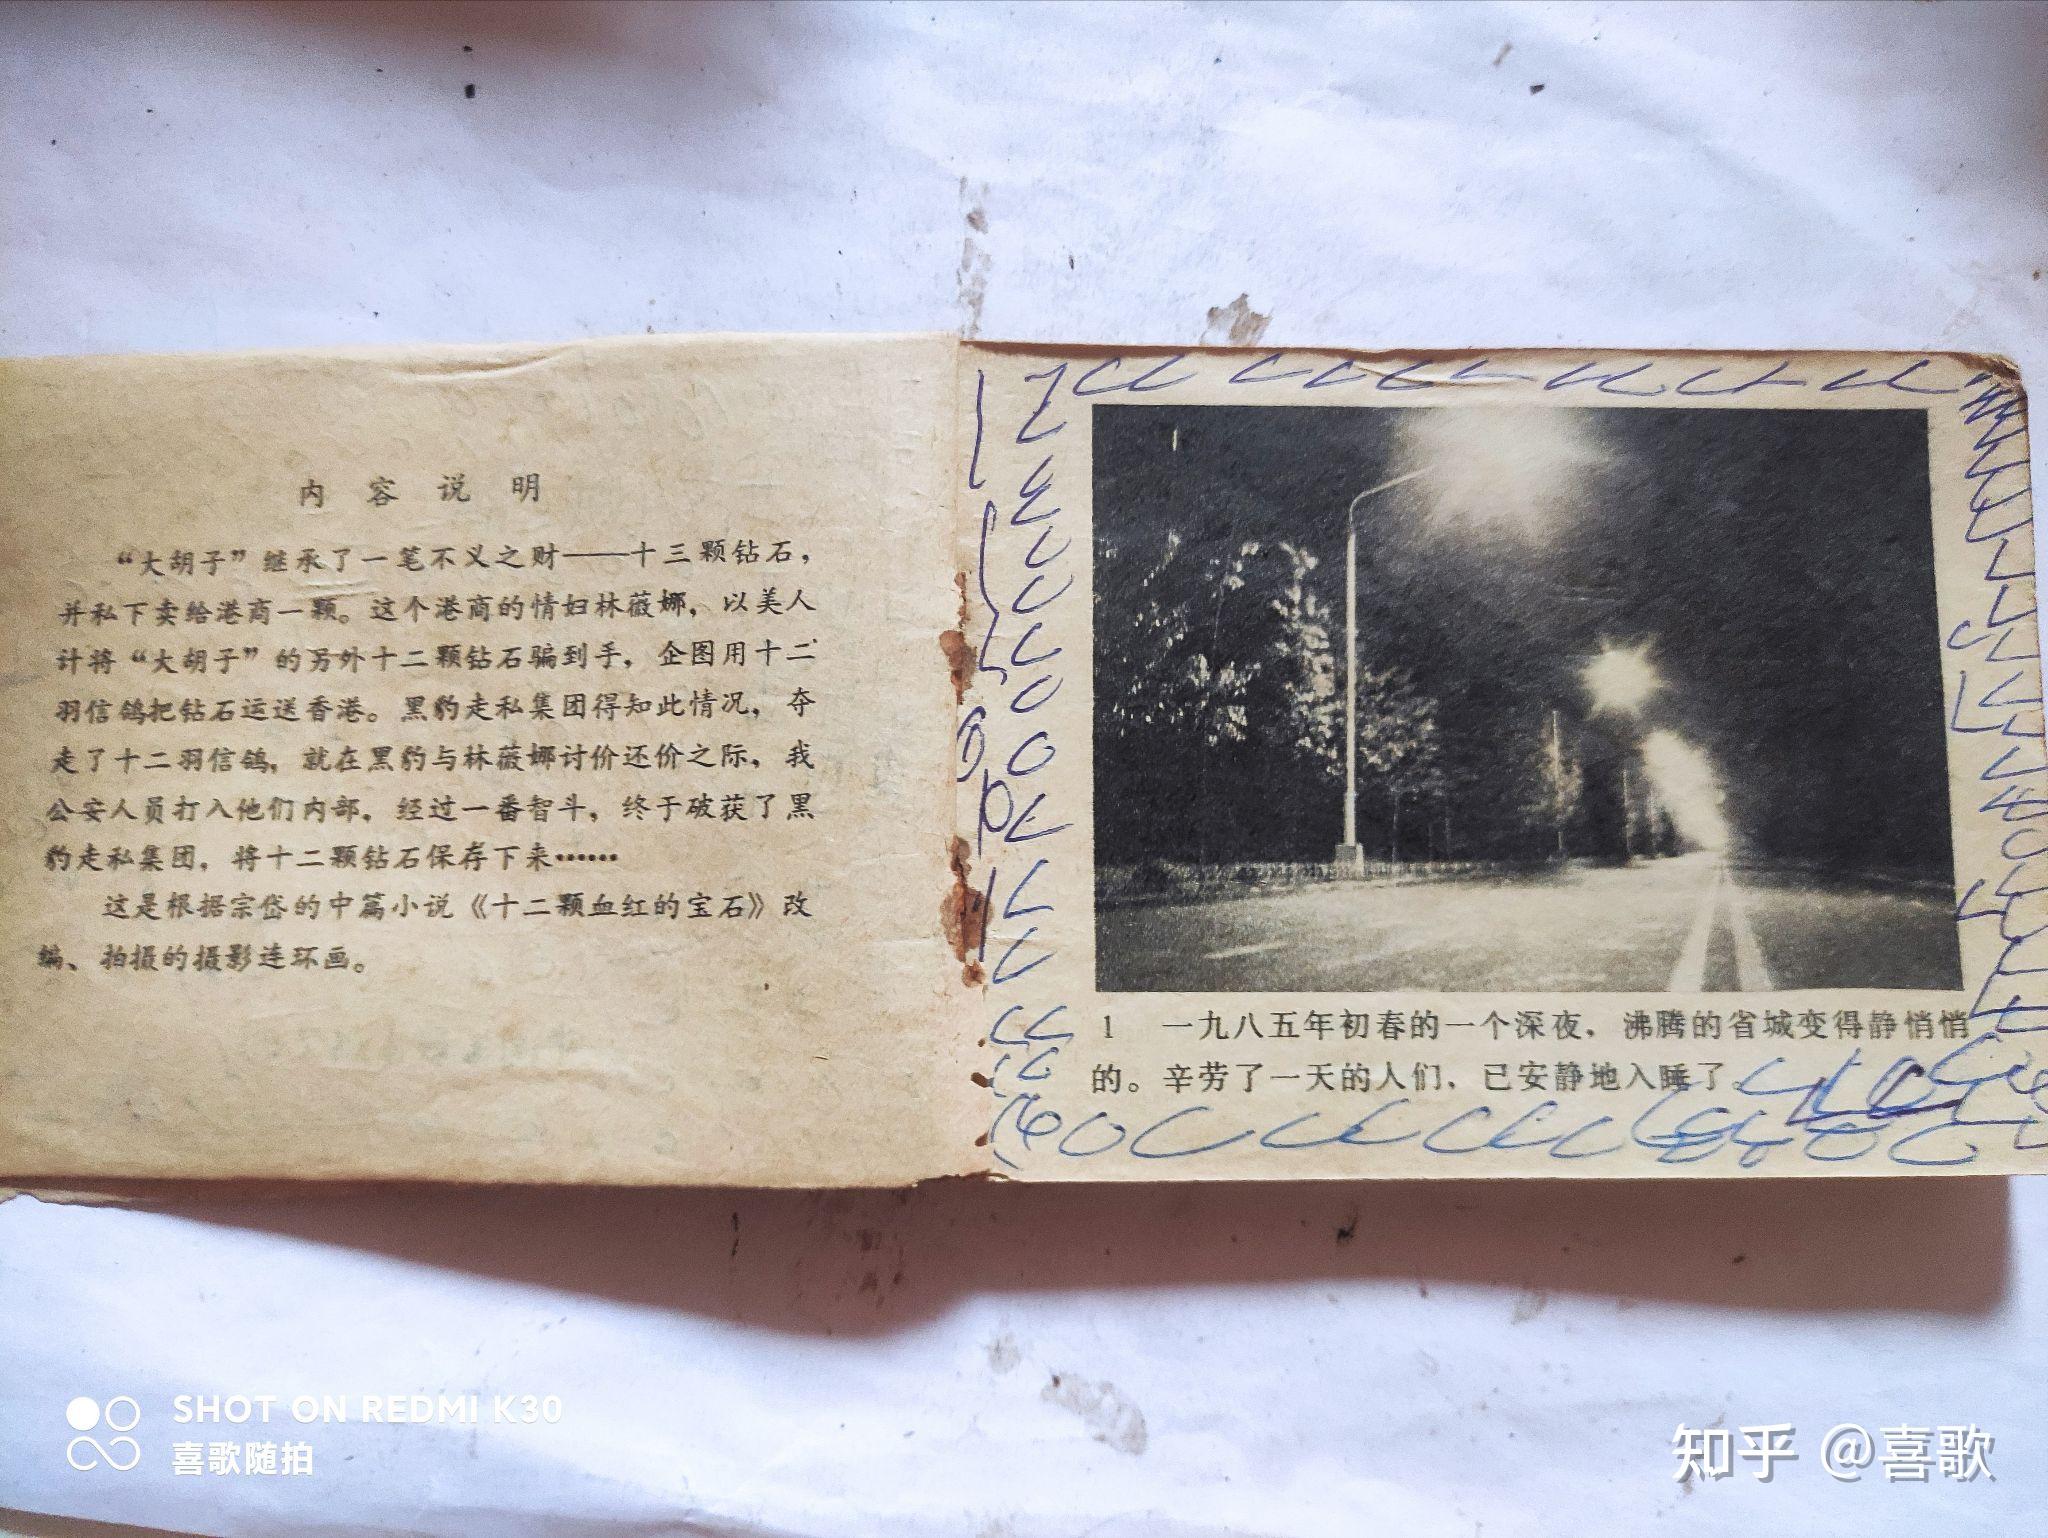 内容说明
“大胡子”继承了一笔不义之财——十三颗钻石，
并私下卖给港商一颗。这个港商的情妇林薇娜，以美人
计将“大胡子”的另外十二颗钻石骗到手，企图用十二
羽信鸽把钻石运送香港。黑豹走私集团得知此情况，夺
走了十二羽信鸽，就在黑豹与林薇娜讨价还价之际，我
公安人员打入他们内部，经过一番智斗，终于破获了黑
豹走私集团，将十二颗钻石保存下来……
这是根据宗岱的中篇小说《十二颗血红的宝石》改
编、拍摄的摄影连环画。
1 一九八五年初春的一个深夜，沸腾的省城变得静悄悄
的。辛劳了一天的人们，已安静地入睡了。
SHOT ON REDMI K30
喜歌随拍
知乎 @喜歌